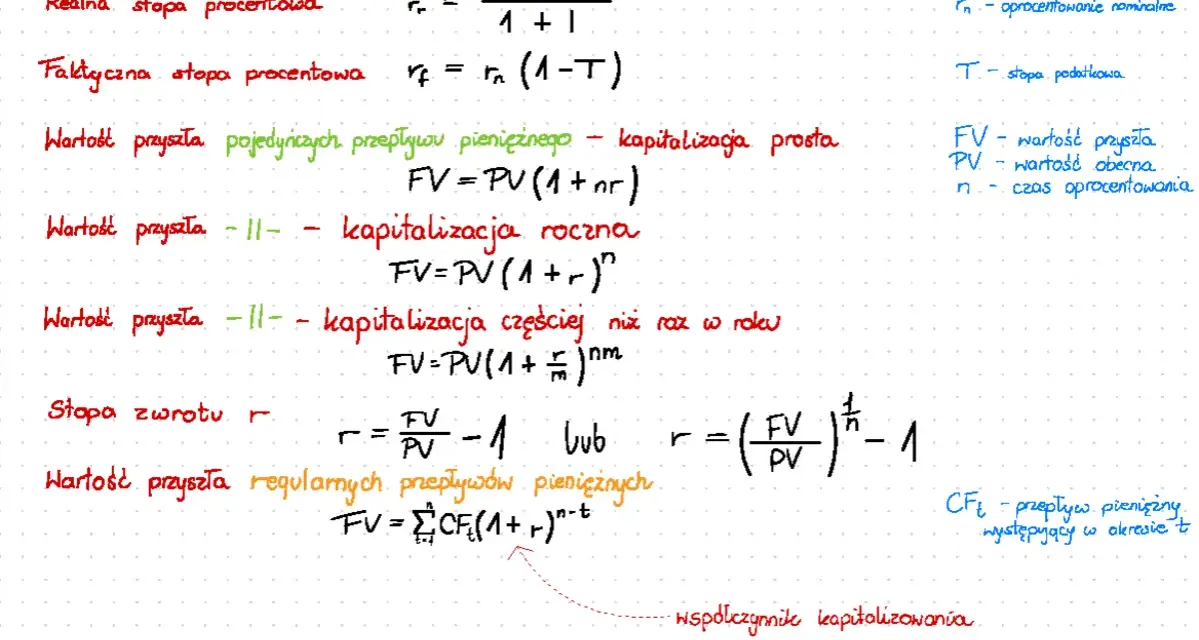 Realna stopa procentowa r_r = ――― 1 + I r_n - oprocentowanie nominalne
Faktyczna stopa procentowa r_f = r_n (1-T) T - stopa podatkowa
Wartość przyszła pojedyńczych przepływu pieniężnego - kapitalizacja prosta FV - wartość przyszła
PV - wartość obecna
FV = PV(1+nr) n - czas oprocentowania
Wartość przyszła -||- - kapitalizacja roczna
FV = PV(1+r)^n
Wartość przyszła -||- - kapitalizacja częściej niż raz w roku
FV = PV(1+r/m)^nm
Stopa zwrotu r r = FV/PV - 1 lub r = (FV/PV)^(1/n) - 1
Wartość przyszła regularnych przepływów pieniężnych
CF_t - przepływ pieniężny
FV = Σ_{t=1}^{n} CF_t(1+r)^{n-t} występujący w okresie t
współczynnik kapitalizowania